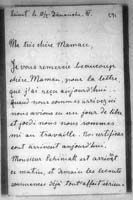 Ma très chère Maman,
Je vous remercie beaucoup
chère Maman, pour la lettre
que j'ai reçue aujourd'hui.
Quand nous sommes arrivés ici
nous avions eu un jour de
et jeudi nous nous sommes
mis au travail. Nos certificats
sont arrivés aujourd'hui.
Monsieur est arrivé
ce matin, et demain les
commencent déjà tout à fait